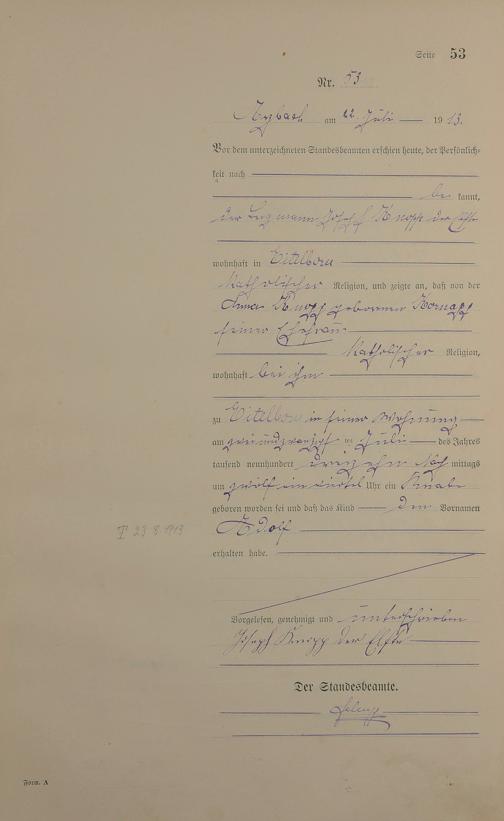 Seite 53
Nr. 53
am 22 Juli 1913.
Vor dem unterzeichneten Standesbeamten erschien heute, der Persönlich-
keit nach
be kannt,
der Bergmann Josef Knopp der Elfte
wohnhaft in Eitelborn
katholischer Religion, und zeigte an, daß von der
Anna Knopp geborenen
seiner Ehefrau
katholischer Religion,
wohnhaft bei ihm
zu Eitelborn in seiner Wohnung
am zweiundzwanzigsten Juli des Jahres
tausend neunhundert dreizehn Nach mittags
um zwölf ein viertel Uhr ein Knabe
geboren worden sei und daß das Kind den Vornamen
Adolf
† 23.8.1913
erhalten habe.
Vorgelesen, genehmigt und unterschrieben
Joseph Knopp der Elfte
Der Standesbeamte.
Form. A